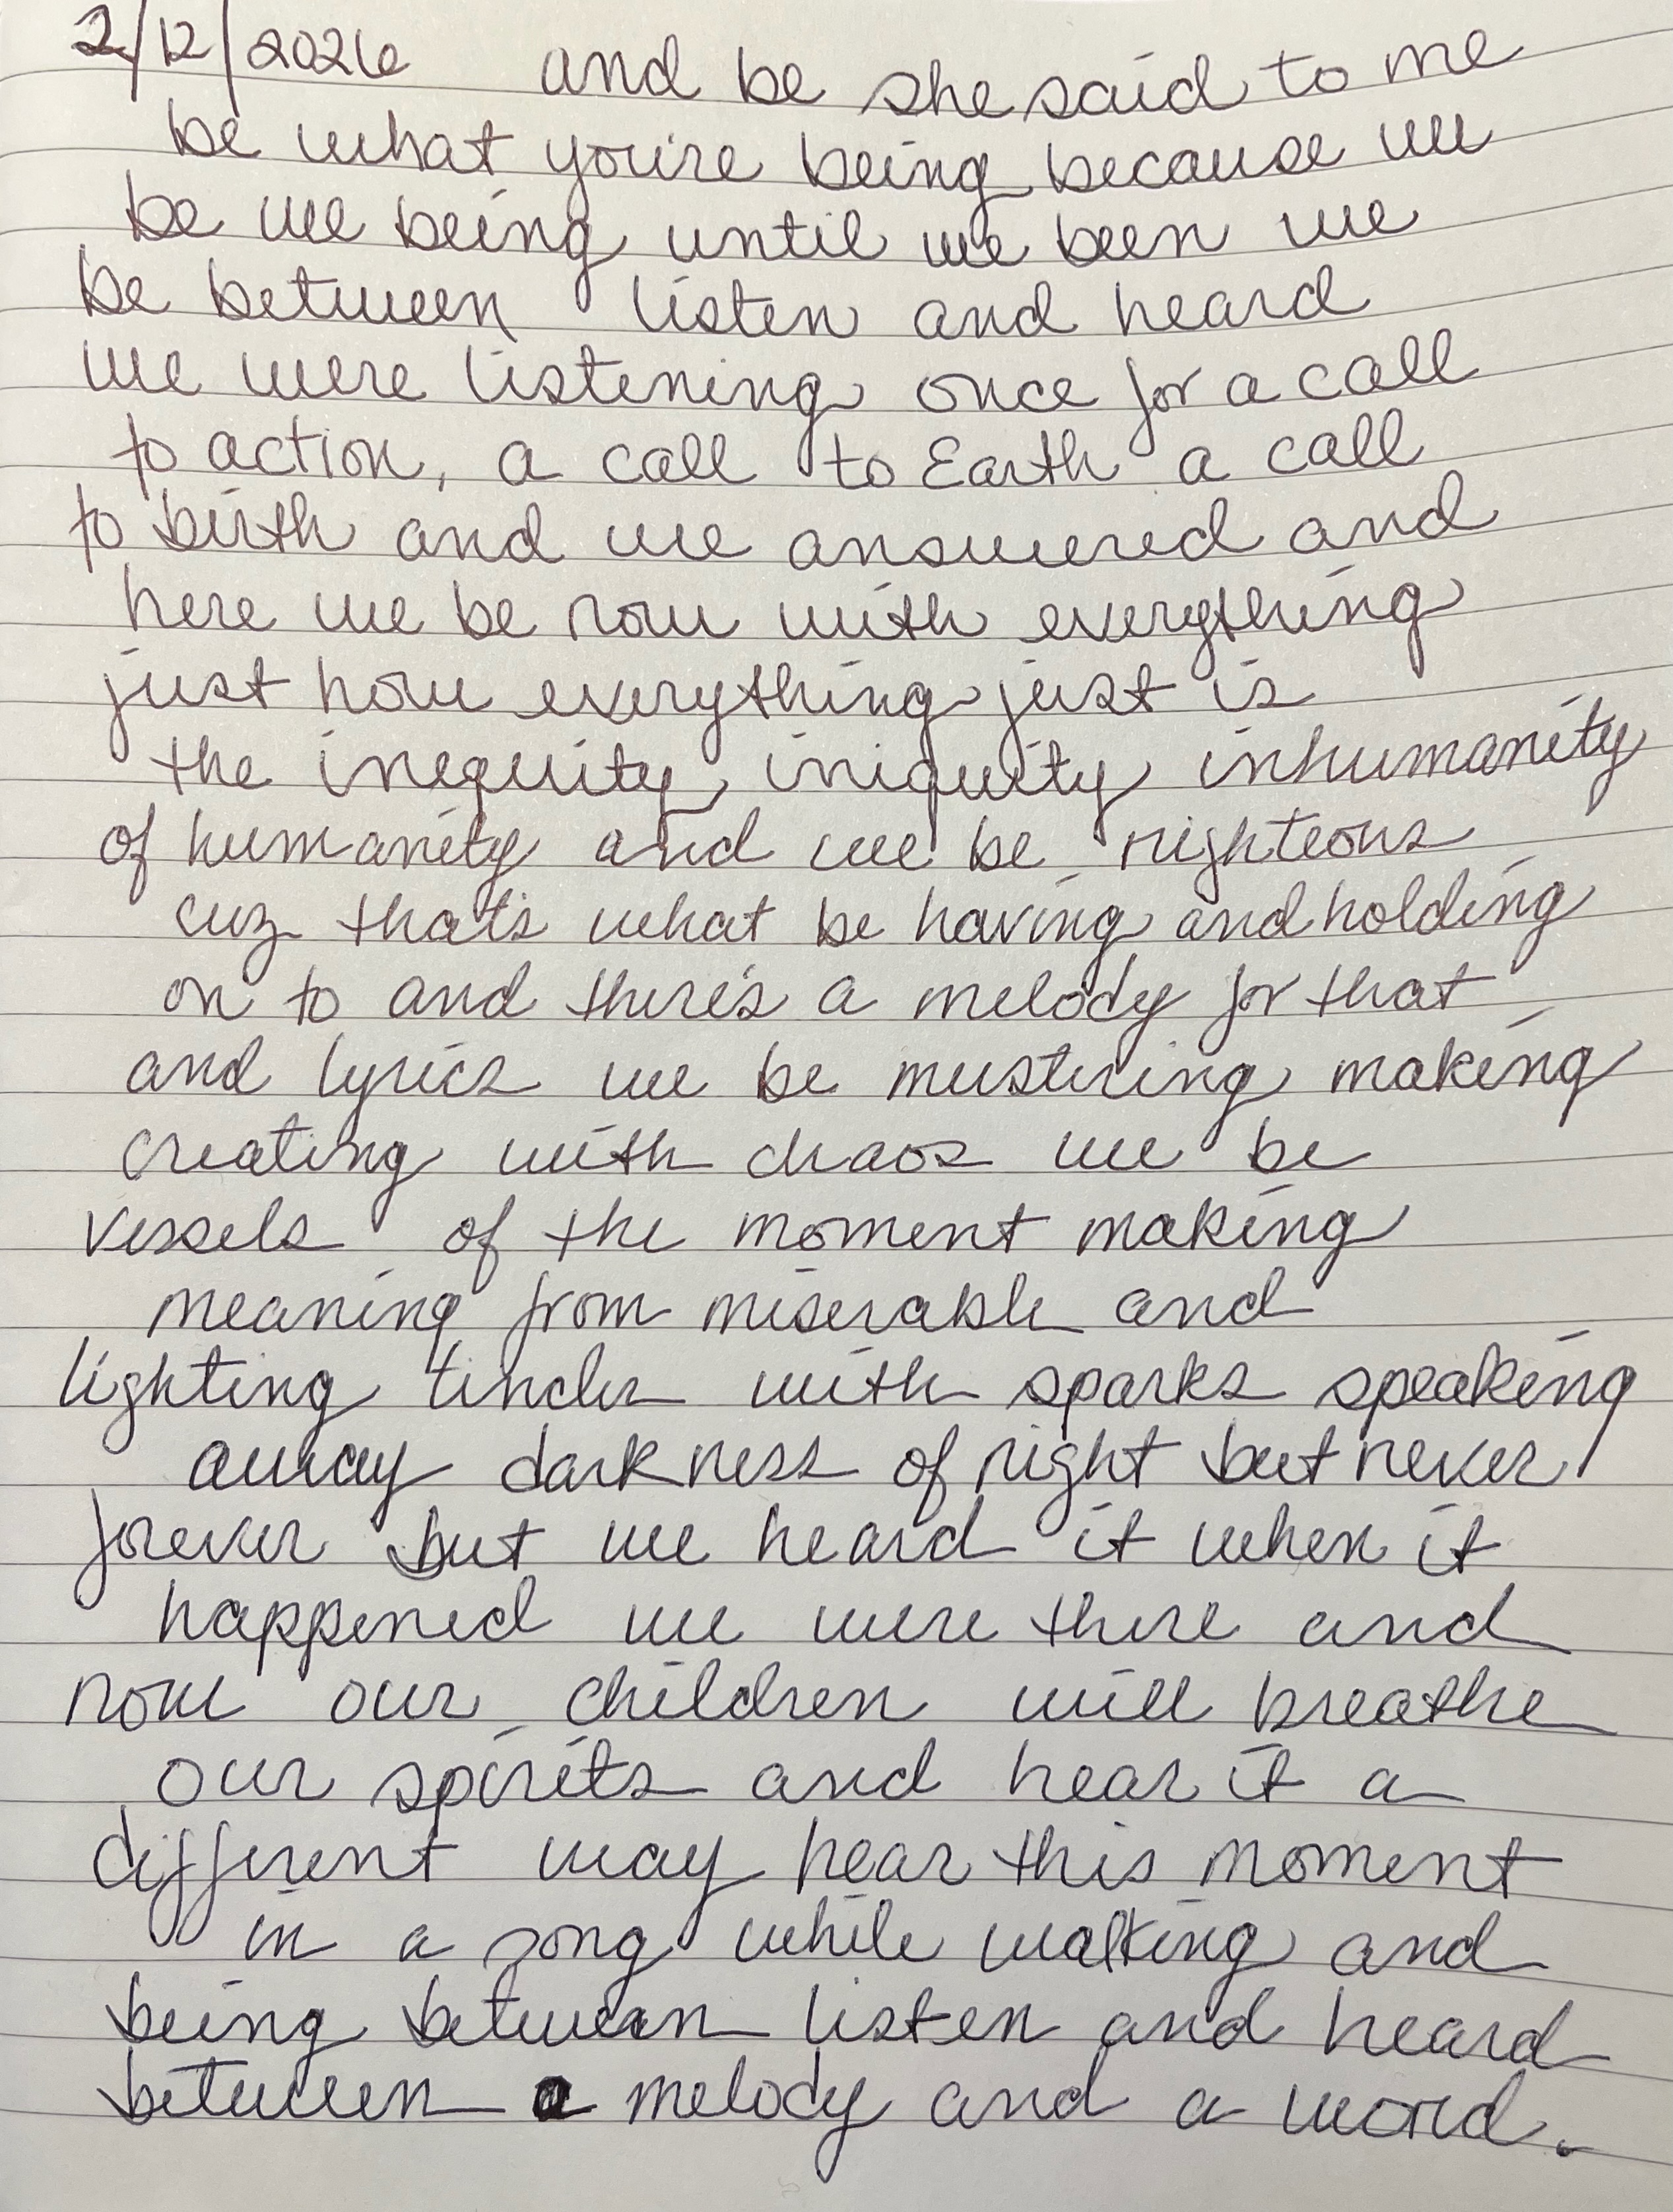 2/12/2026 and be she said to me
be what you're being because we
be we being until we been we
be between listen and heard
we were listening once for a call
to action, a call to Earth a call
to birth and we answered and
here we be now with everything
just how everything just is
the inequity, iniquity inhumanity
of humanity and we be righteous
cuz that's what be having and holding
on to and there's a melody for that
and lyrics we be mustering making
creating with chaos we be
vessels of the moment making
meaning from miserable and
lighting tinder with sparks speaking
away darkness of night but never
forever but we heard it when it
happened we were there and
now our children will breathe
our spirits and hear it a
different way hear this moment
in a song while walking and
being between listen and heard
between a melody and a word.